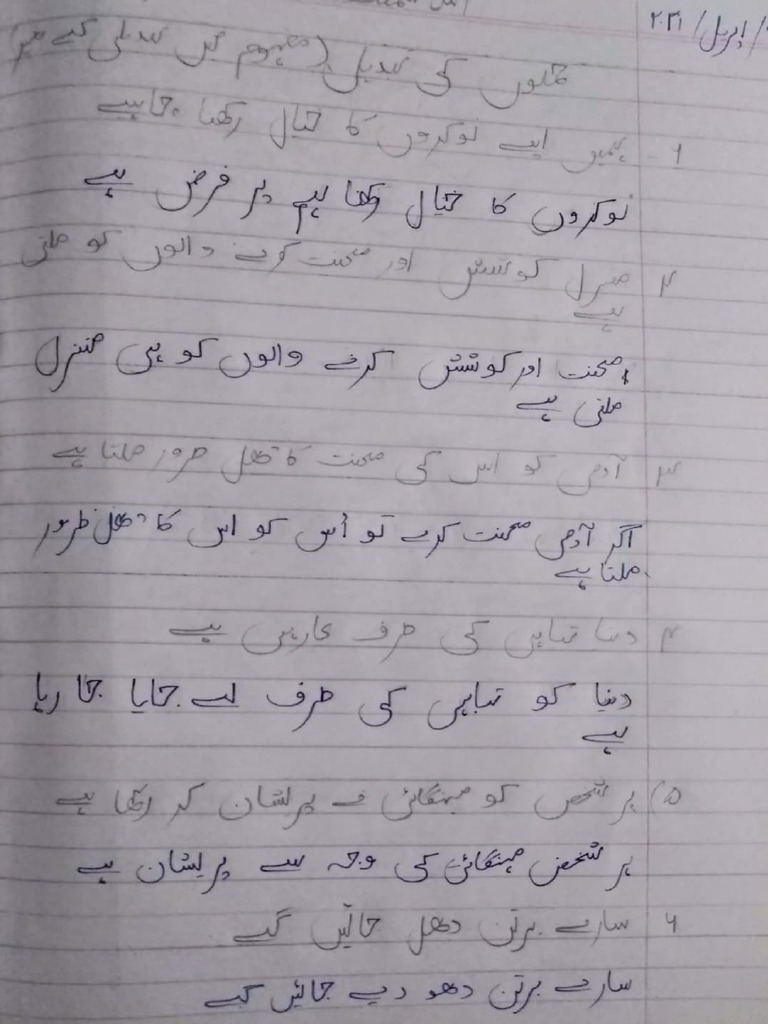 اپریل/ ۲۰۲۱
جملوں کی تبدیلی (مفہوم میں تبدیلی کیے بغیر)
۱۔ ہمیں اپنے نوکروں کا خیال رکھنا چاہیے
نوکروں کا خیال رکھنا ہم پر فرض ہے
۲ منزل کوشش اور محنت کرنے والوں کو ملتی
ہے
محنت اور کوشش کرنے والوں کو ہی منزل
ملتی ہے
۳ آدمی کو اس کی محنت کا پھل ضرور ملتا ہے
اگر آدمی محنت کرے تو اُس کو اس کا پھل ضرور
ملتا ہے
۴ دنیا تباہی کی طرف جا رہی ہے
دنیا کو تباہی کی طرف لے جایا جا رہا
ہے
۵) ہر شخص کو مہنگائی نے پریشان کر رکھا ہے
ہر شخص مہنگائی کی وجہ سے پریشان ہے
۶ سارے برتن دھل جائیں گے
سارے برتن دھو دیے جائیں گے